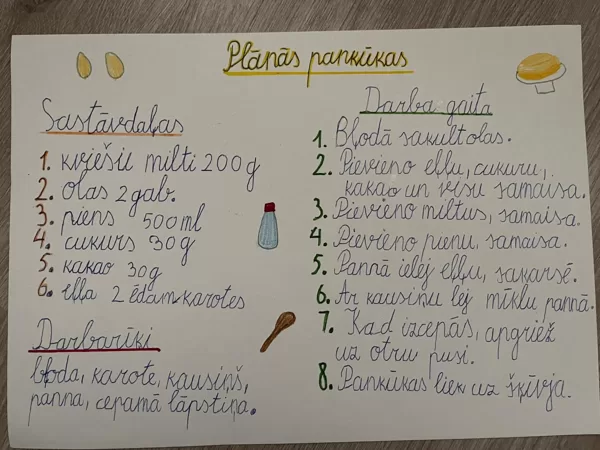 Plānās pankūkas
Sastāvdaļas
1. kviešu milti 200 g
2. olas 2 gab.
3. piens 500 ml
4. cukurs 30 g
5. kakao 30g
6. eļļa 2 ēdamkarotes
Darbarīki
bļoda, karote, kausiņš,
panna, cepamā lāpstiņa.
Darba gaita
1. Bļodā sakult olas.
2. Pievieno eļļu, cukuru,
kakao un visu samaisa.
3. Pievieno miltus, samaisa.
4. Pievieno pienu, samaisa.
5. Pannā ielej eļļu, sakarsē.
6. Ar kausiņu lej mīklu pannā.
7. Kad izcepās, apgriež
uz otru pusi.
8. Pankūkas liek uz šķīvja.